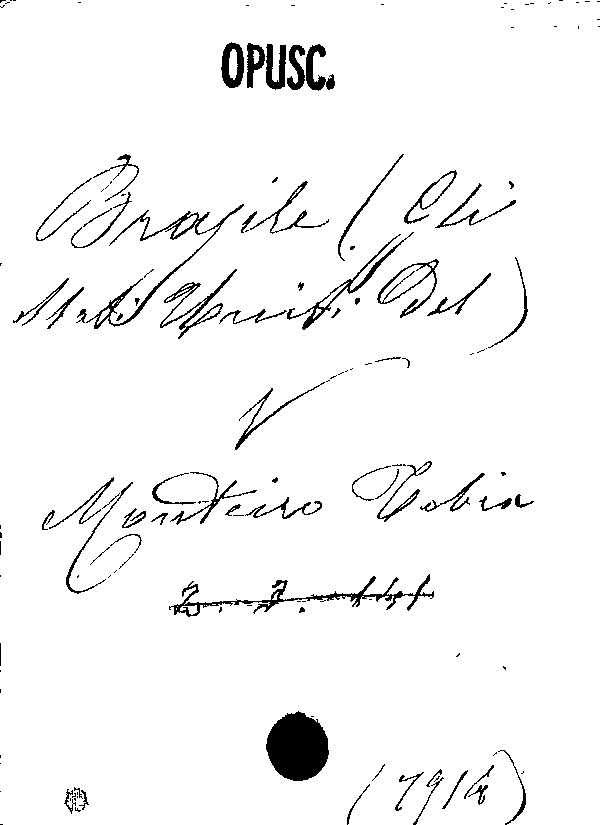 OPUSC.
Brasile (Gli
Stati Uniti del)
V
Monteiro Tobia
(7914)